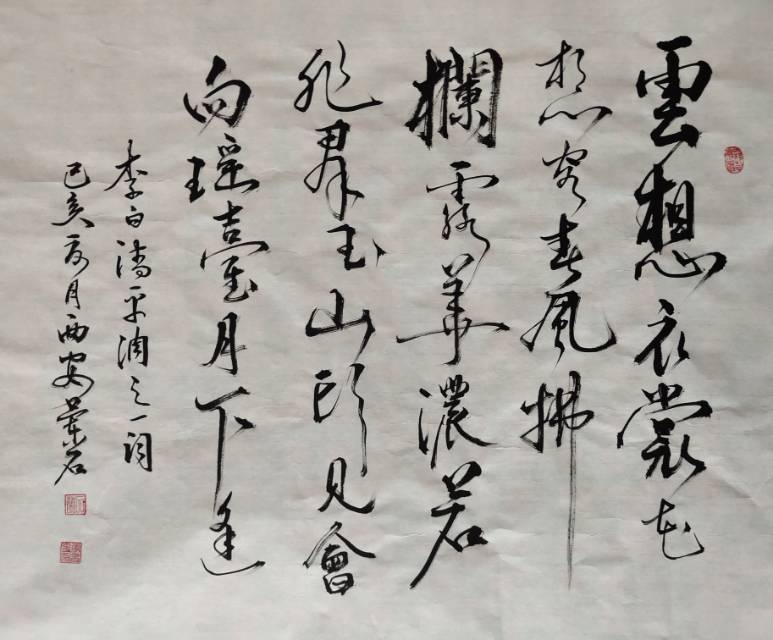 雲想衣裳花
想容春風拂
欄露華濃若
非羣玉山頭見會
向瑤臺月下逢
李白清平調之一詞
己亥夏月西安